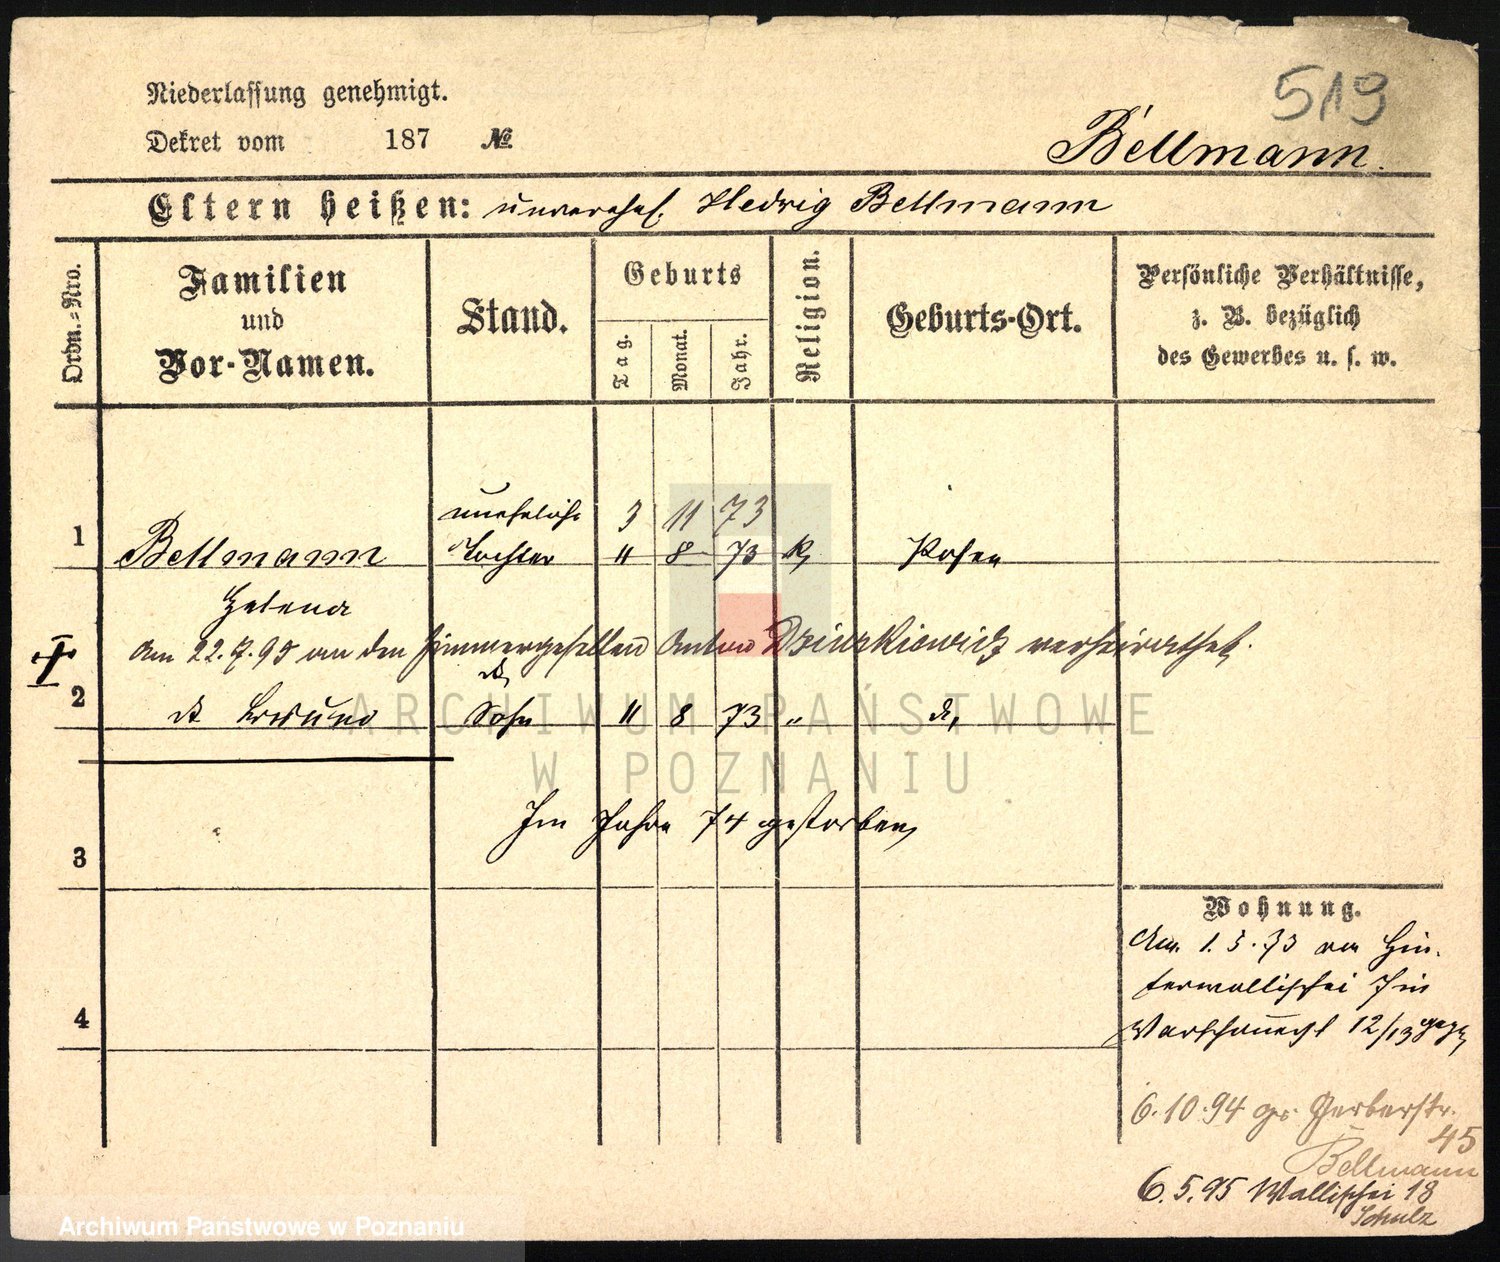 519
Niederlassung genehmigt.
Dekret vom 187 №
Bellmann.
Eltern heißen: unverehel. Hedwig Bellmann
Ordn.-Nro.
Familien
und
Vor-Namen.
Stand.
Geburts
Tag.
Monat.
Jahr.
Religion.
Geburts-Ort.
Persönliche Verhältnisse,
z. B. bezüglich
des Gewerbes u. s. w.
uneheliche 3 11 73
1 Bellmann Tochter 11 8 73 K Posen
Helena
Am 22.7.95 an den Zimmergesellen Anton verheirathet.
do
2 dt Sohn 11 8 73 " do
Im Jahre 74 gestorben
3
4
Wohnung.
Am 1.5.73 von Hin-
terwallischei 7 in
12/13 gezg
6.10.94 gr. Gerberstr.
45
Bellmann
6.5.95 Wallischei 18
Schulz
ARCHIWUM PAŃSTWOWE
W POZNANIU
Archiwum Państwowe w Poznaniu